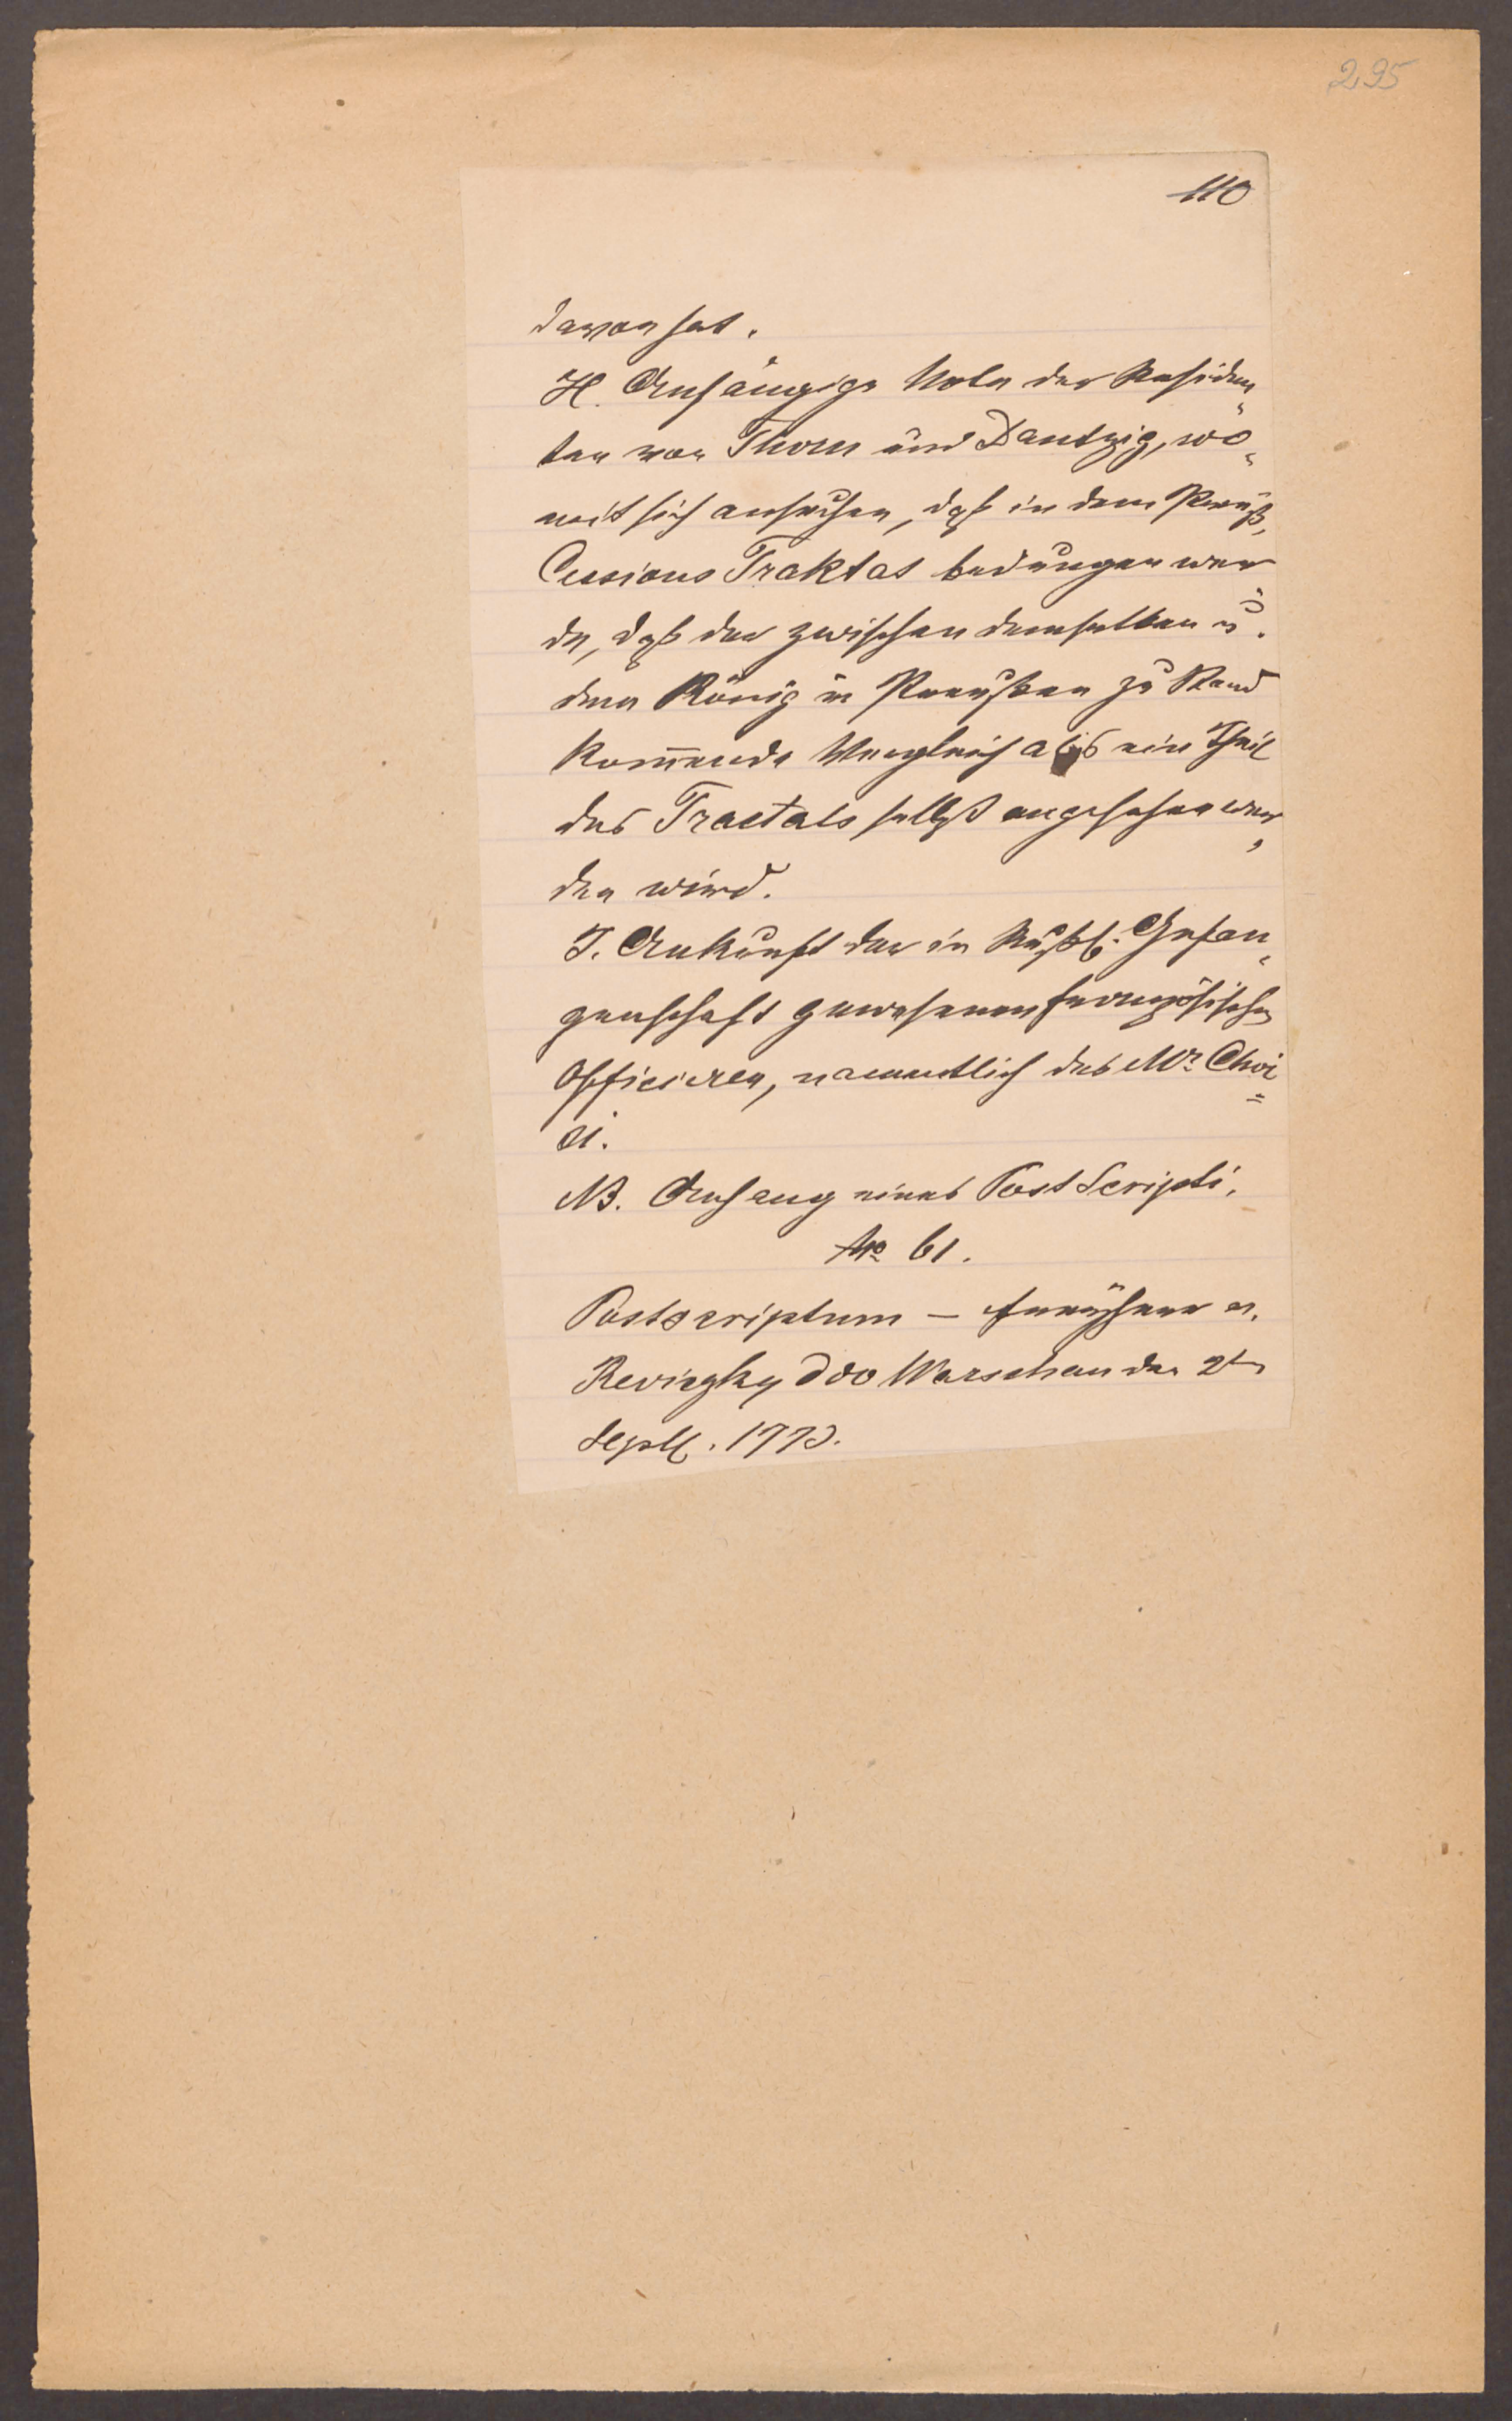 295
110
davon hat.
H. Anhängige Note der Residen„
ten von Thorn und Dantzig, wo„
mit sich ansuchen, daß in dem Preuß.
Cessions Traktat bedungen wer„
de, daß der zwischen demselben u.
dem König in Preußen zu Stand
kom̄ende Vergleich als ein Theil
des Tractats selbst angesehen wer„
den wird.
I. Ankunft der in Rußl. Gefan„
genschaft gewesenen französischen
Officieren, namentlich des Mr. Choi=
si.
NB. Anhang eines Post Scripti.
No 61.
Postscriptum – Freyherr v.
Reviczky ddo Warschau den 2ten
Septb. 1773.